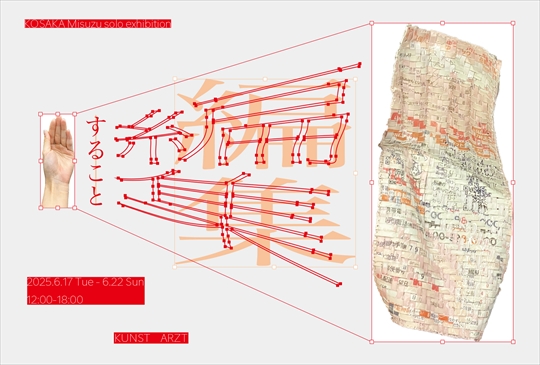 KOSAKA Misuzu solo exhibition
編集
すること
2025.6.17 Tue - 6.22 Sun
12:00-18:00
KUNST ARZT